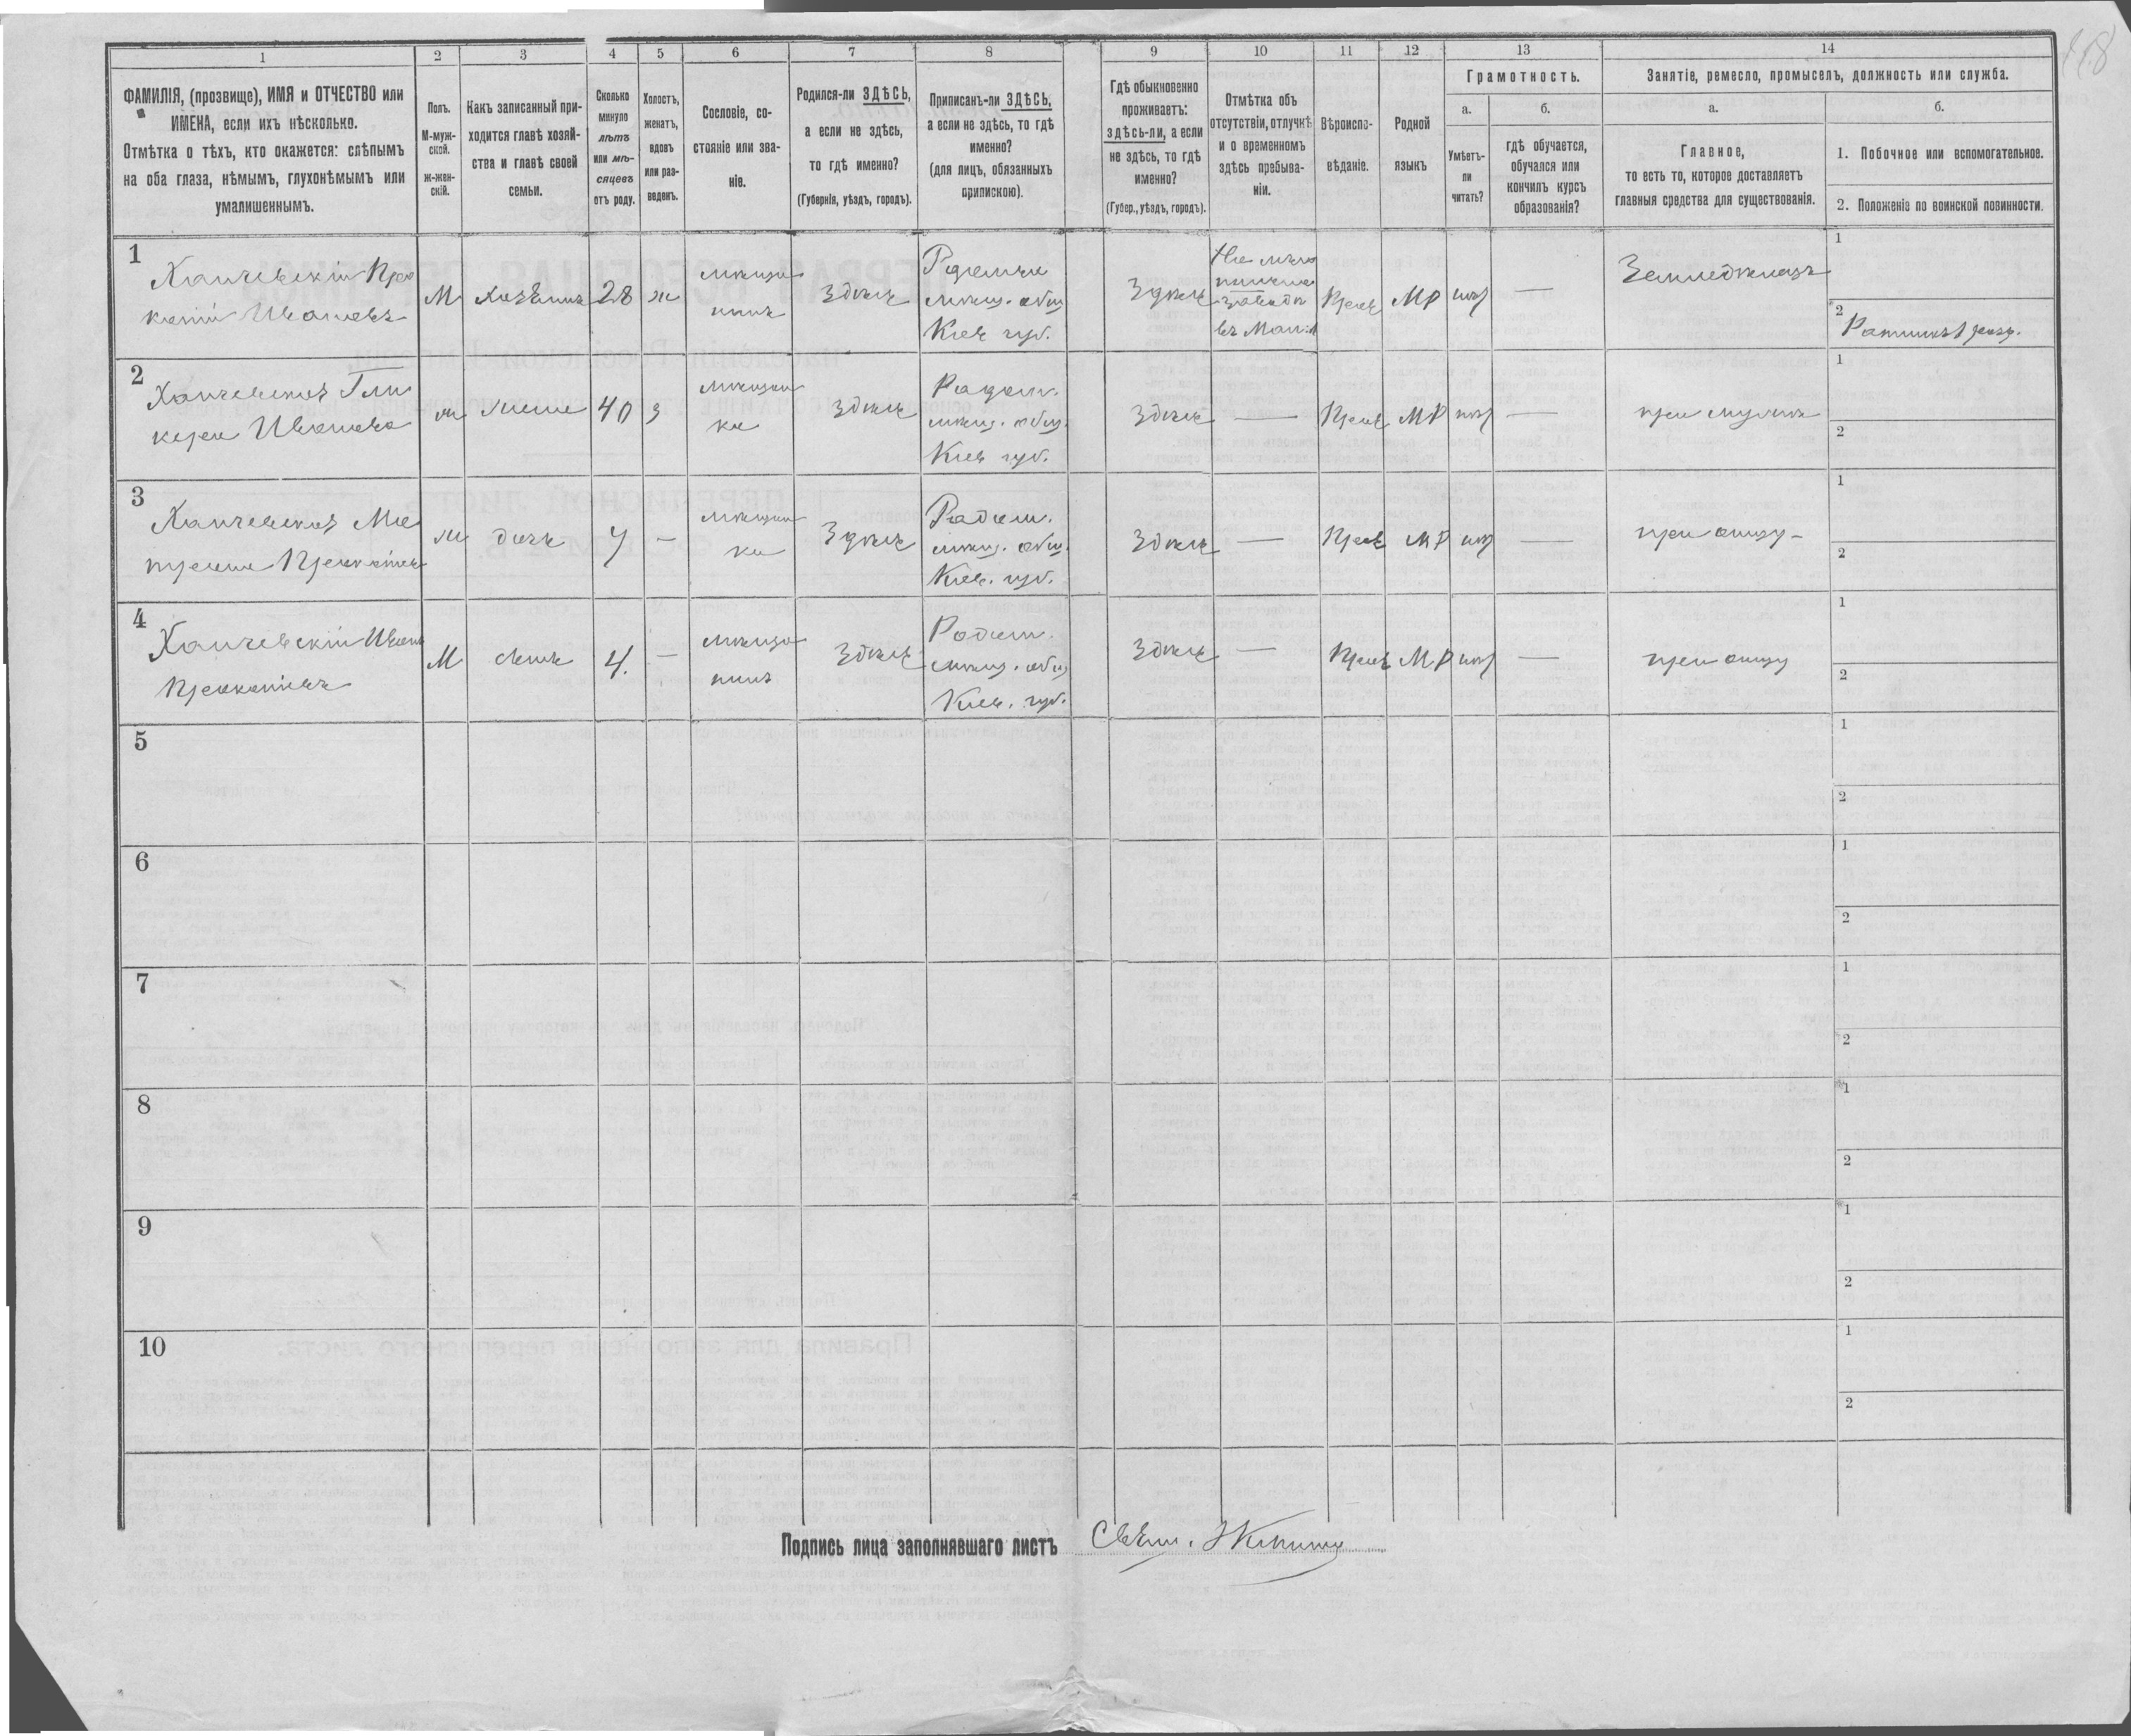 118
1
2
3
4
5
6
7
8
9
10
11
12
13
14
ФАМИЛІЯ, (прозвище), ИМЯ и ОТЧЕСТВО или
ИМЕНА, если ихъ нѣсколько.
Отмѣтка о тѣхъ, кто окажется: слѣпымъ
на оба глаза, нѣмымъ, глухонѣмымъ или
умалишеннымъ.
Полъ.
М-муж-
ской.
ж-жен-
скій.
Какъ записанный при-
ходится главѣ хозяй-
ства и главѣ своей
семьи.
Сколько
минуло
лѣтъ
или мѣ-
сяцевъ
отъ роду.
Холостъ,
женатъ,
вдовъ
или раз-
веденъ.
Сословіе, со-
стояніе или зва-
ніе.
Родился-ли ЗДѢСЬ,
а если не здѣсь,
то гдѣ именно?
(Губернія, уѣздъ, городъ).
Приписанъ-ли ЗДѢСЬ,
а если не здѣсь, то гдѣ
именно?
(для лицъ, обязанныхъ
припискою).
Гдѣ обыкновенно
проживаетъ:
здѣсь-ли, а если
не здѣсь, то гдѣ
именно?
(Губер., уѣздъ, городъ).
Отмѣтка объ
отсутствіи, отлучкѣ
и о временномъ
здѣсь пребыва-
ніи.
Вѣроиспо-
вѣданіе.
Родной
языкъ
Грамотность.
а.
б.
Умѣетъ-
ли
читать?
гдѣ обучается,
обучался или
кончилъ курсъ
образованія?
Занятіе, ремесло, промыселъ, должность или служба.
а.
б.
Главное,
то есть то, которое доставляетъ
главныя средства для существованія.
1. Побочное или вспомогательное.
2. Положеніе по воинской повинности.
1
Ханчевскій Про
копій Ивановъ
М
хозяинъ
28
ж
мѣща
нинъ
Здѣсь
мѣщ. общ
Кіев губ.
Здѣсь
Прав
МР
нѣт
—
Земледѣліе
1
2
Ратникъ 1 разр.
2
Ханчевская Гли
керія Иванова
ж
жена
40
з
мѣщан
ка
Здѣсь
Радом.
мѣщ. общ.
Кіев губ.
Здѣсь
—
Прав
МР
нѣт
—
при мужѣ
1
2
3
Ханчевская Ма
Прокопіев
ж
дочь
7
—
мѣщан
ка
Здѣсь
Радом.
мѣщ. общ.
Кіев. губ.
Здѣсь
—
Прав
МР
нѣт
—
при отцу
1
2
4
Ханчевскій Иванъ
Прокопіевъ
М
сынъ
4.
—
мѣща
нинъ
Здѣсь
Радом.
мѣщ. общ
Кіев. губ.
Здѣсь
—
Прав
МР
нѣт
—
при отцу
1
2
5
1
2
6
1
2
7
1
2
8
1
2
9
1
2
10
1
2
Подпись лица заполнявшаго листъ